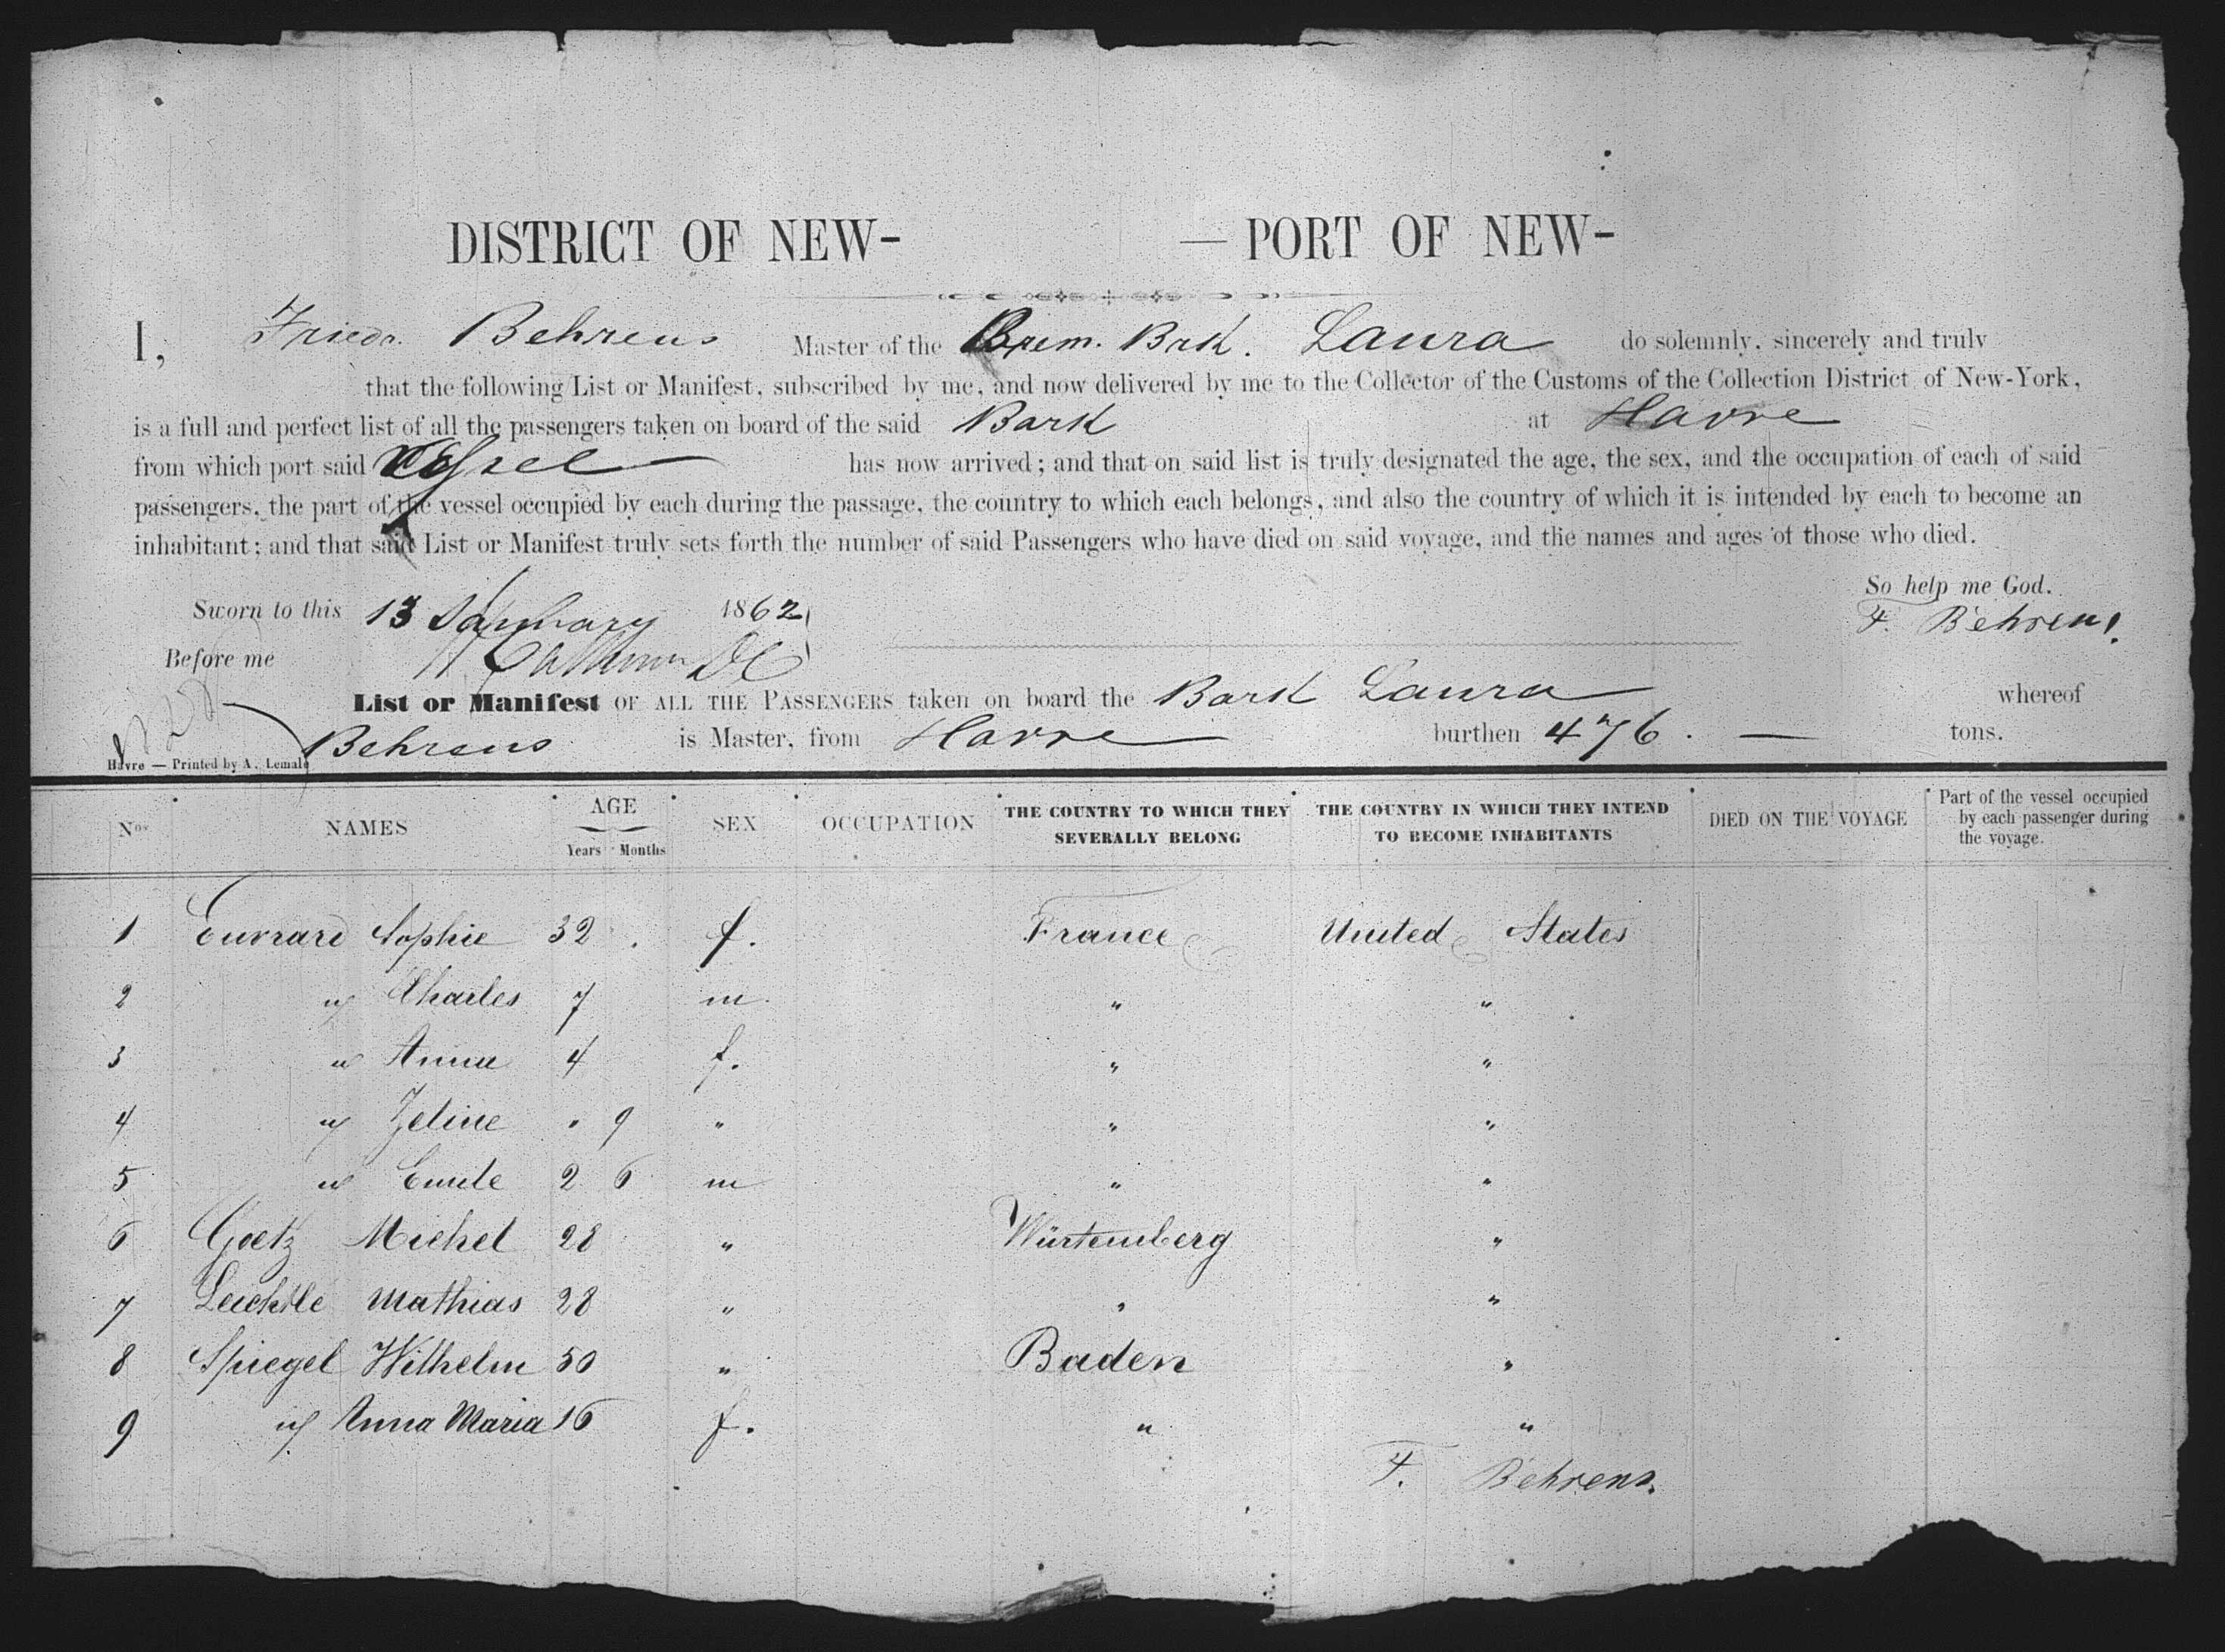 DISTRICT OF NEW- — PORT OF NEW-
I, Friedr. Behrens Master of the Brem. Bark. Laura do solemnly, sincerely and truly
that the following List or Manifest, subscribed by me, and now delivered by me to the Collector of the Customs of the Collection District of New-York,
is a full and perfect list of all the passengers taken on board of the said Bark at Havre
from which port said Vessel has now arrived; and that on said list is truly designated the age, the sex, and the occupation of each of said
passengers, the part of the vessel occupied by each during the passage, the country to which each belongs, and also the country of which it is intended by each to become an
inhabitant; and that said List or Manifest truly sets forth the number of said Passengers who have died on said voyage, and the names and ages of those who died.
So help me God.
Sworn to this 13 January 1862 F. Behrens
Before me
List or Manifest OF ALL THE PASSENGERS taken on board the Bark Laura whereof
Behrens is Master, from Havre burthen 476. — tons.
Havre — Printed by A. Lemale
Nos NAMES AGE Years Months SEX OCCUPATION THE COUNTRY TO WHICH THEY SEVERALLY BELONG THE COUNTRY IN WHICH THEY INTEND TO BECOME INHABITANTS DIED ON THE VOYAGE Part of the vessel occupied by each passenger during the voyage.
1 Euvrard Sophie 32 . f. France United States
2 " Charles 7 m. " "
3 " Anna 4 f. " "
4 " Zeline " 9 " " "
5 " Emile 2 6 m " "
6 Goetz Michel 28 " Würtemberg "
7 Leichtle Mathias 28 " " "
8 Spiegel Wilhelm 50 " Baden "
9 " Anna Maria 16 f. " "
F. Behrens.